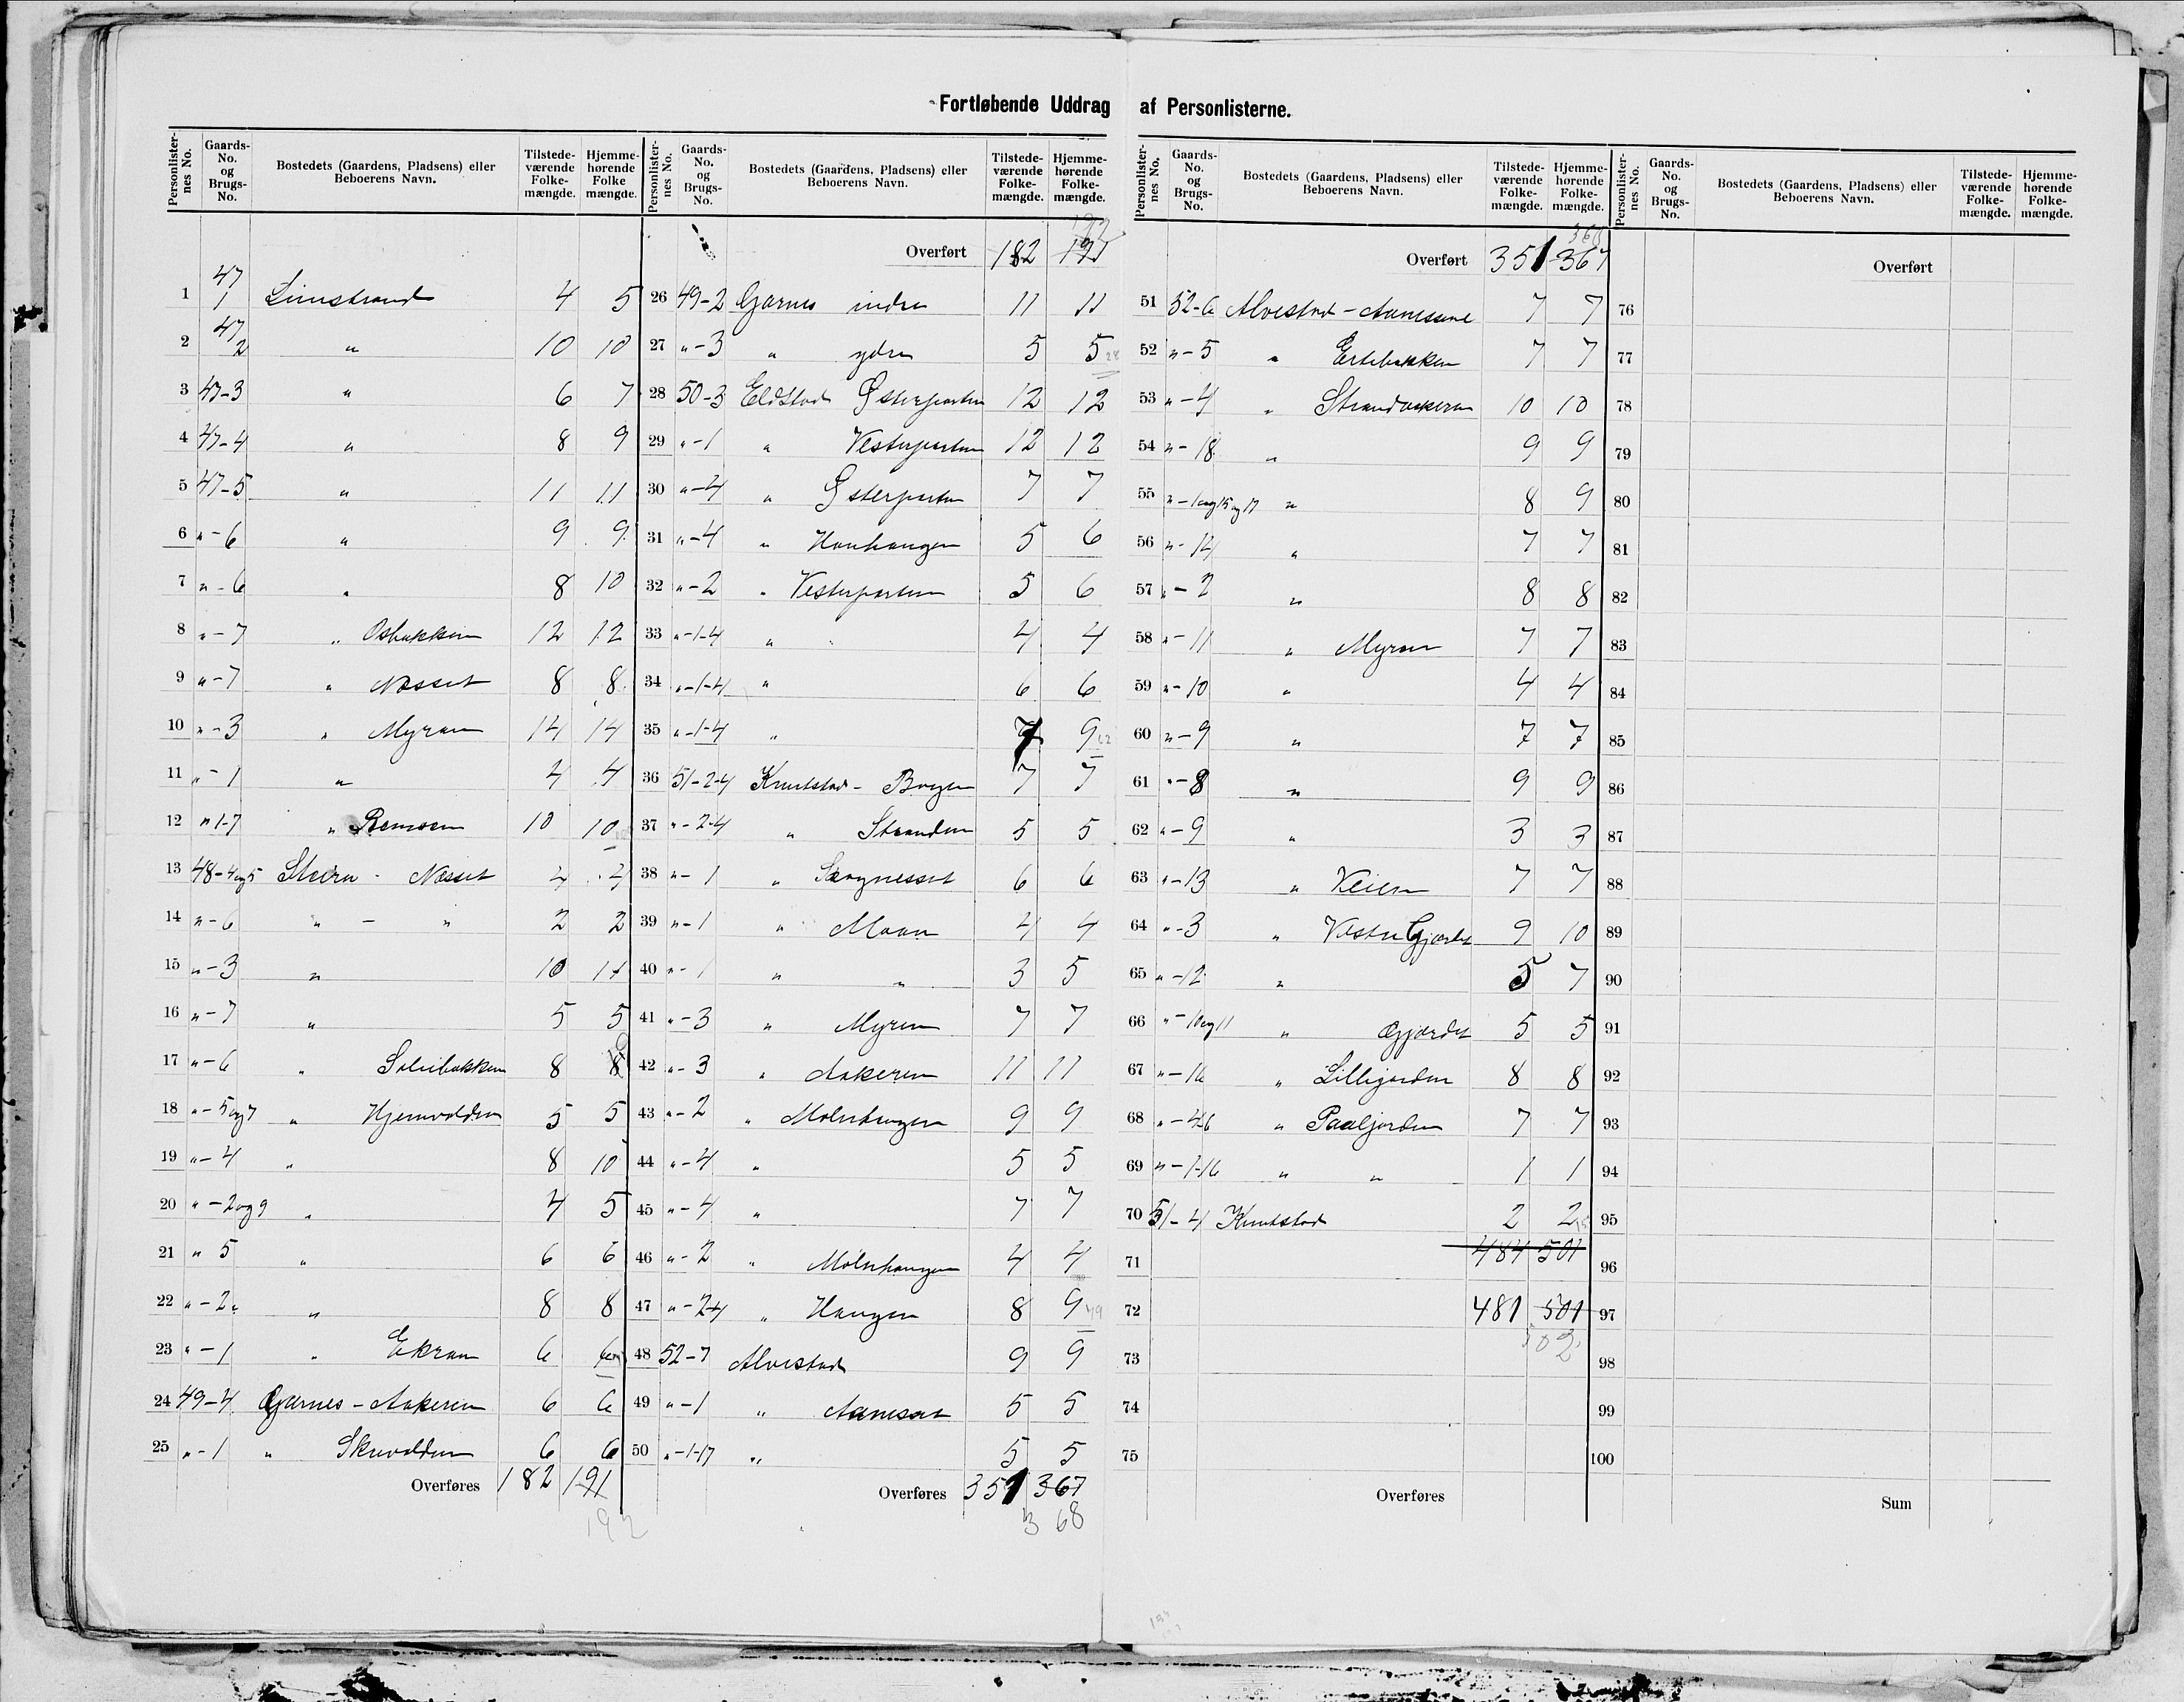 Fortløbende Uddrag af Personlisterne.
Personlister- nes No. Gaards- No. og Brugs- No. Bostedets (Gaardens, Pladsens) eller Beboerens Navn. Tilstede- værende Folke- mængde. Hjemme- hørende Folke mængde.
1 47 1 Limstrand 4 5
2 47 2 " 10 10
3 47-3 " 6 7
4 47-4 " 8 9
5 47-5 " 11 11
6 "-6 " 9 9
7 "-6 " 8 10
8 "-7 " Osbakken 12 12
9 "-7 " Næsset 8 8
10 "-3 " Myran 14 14
11 "-1 " 4 4
12 " 1-7 " Remoen 10 10
13 48-4og5 - Næsset 4 4
14 "-6 " - " 2 2
15 "-3 " 10 11
16 "-7 " 5 5
17 "-6 " 8 8
18 "-5og7 " Hjemvolden 5 5
19 "-4 " 8 10
20 "-2og9 " 4 5
21 " 5 " 6 6
22 "-2 " 8 8
23 "-1 " Ekran 6 6
24 49-4 Garnes - Aakeren 6 6
25 "-1 " Skuvolden 6 6
Overføres 182 191
192
Personlister- nes No. Gaards- No. og Brugs- No. Bostedets (Gaardens, Pladsens) eller Beboerens Navn. Tilstede- værende Folke- mængde. Hjemme- hørende Folke- mængde.
192
Overført 182 191
26 49-2 Garnes indre 11 11
27 "-3 " ydre 5 5 28
28 50-3 Eldstad Østerparten 12 12
29 "-1 " Vesterparten 12 12
30 "-4 " Østerparten 7 7
31 "-4 " Hanhaugen 5 6
32 "-2 " Vesterparten 5 6
33 "-1-4 " 4 4
34 "-1-4 " 6 6
35 "-1-4 " 7 9 62
36 51-2-4 Knutstad - Bogen 7 7
37 "-2-4 " Stranden 5 5
38 "-1 " Skognesset 6 6
39 "-1 " Moan 4 4
40 "-1 " " 3 5
41 "-3 " Myren 7 7
42 "-3 " Aakeren 11 11
43 "-2 " Molnhaugen 9 9
44 "-4 " 5 5
45 "-4 " 7 7
46 "-2 " Molnhaugen 4 4
47 "-2-4 " Haugen 8 9 79
48 52-7 Alvestad 9 9
49 "-1 " Aanesset 5 5
50 "-1-17 " 5 5
Overføres 351 367
368
Personlister- nes No. Gaards- No. og Brugs- No. Bostedets (Gaardens, Pladsens) eller Beboerens Navn. Tilstede- værende Folke- mængde. Hjemme- hørende Folke- mængde.
368
Overført 351 367
51 52-6 Alvestad - 7 7
52 "-5 " Ertebakken 7 7
53 "-4 " Strandaakeren 10 10
54 "-18 " 9 9
55 "-1og15og17 " 8 9
56 "-14 " 7 7
57 "-2 " 8 8
58 "-11 " Myran 7 7
59 "-10 " 4 4
60 "-9 " 7 7
61 "-8 " 9 9
62 "-9 " 3 3
63 "-13 " Veien 7 7
64 "-3 " Vestre Gjærdet 9 10
65 "-12 " 5 7
66 "-10og11 " Gjærdet 5 5
67 "-16 " Lillejorden 8 8
68 "-46 " Paaljorden 7 7
69 "-1-16 " " 1 1
70 51-4 Knutstad 2 2
71 484 501
72 481 501
502
73
74
75
Overføres
Personlister- nes No. Gaards- No. og Brugs- No. Bostedets (Gaardens, Pladsens) eller Beboerens Navn. Tilstede- værende Folke- mængde. Hjemme- hørende Folke- mængde.
Overført
76
77
78
79
80
81
82
83
84
85
86
87
88
89
90
91
92
93
94
95
96
97
98
99
100
Sum